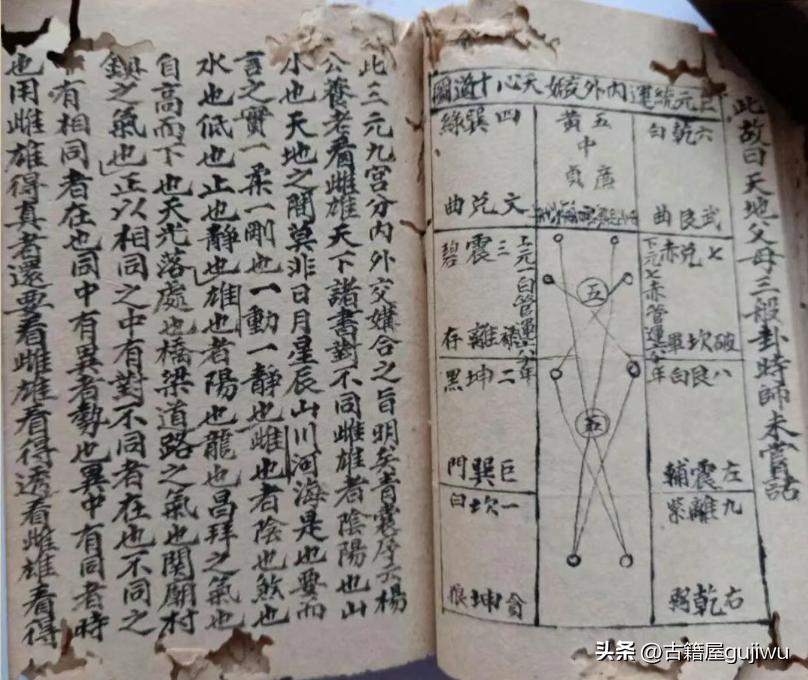 此故曰天地父母三般卦時師未嘗話
三元統運內外交媾天心十道圖
六乾白
武艮曲
五
黃中
廉貞
四巽綠
文兌曲
七兌赤
破坎軍
下元七赤管運六十年
五
上元一白管運六十年
三震碧
祿離存
八艮白
左震輔
五
二坤黑
巨巽門
九離紫
右乾弼
一坎白
貪坤狼
此三元九宮分內外交媾合之旨明矣青囊序云楊
公養老看雌雄天下諸書對不同雌雄者陰陽也山
水也天地之間莫非日月星辰山川河海是也要而
言之實一柔一剛也一動一靜也雌也者陰也煞也
水也低也止也靜也雄也者陽也龍也昌拜之氣也
自高而下也天光落處也橋梁道路之氣也関廟村
鎮之氣也正以相同之中有對不同者在也不同之
有相同者在也同中有異者勢也異中有同者時
也用雌雄得真者還要看雌雄看得透看雌雄看得
头条 @古籍屋gujiwu